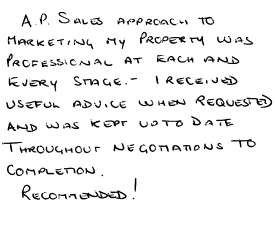 A.P. SALES APPROACH TO
MARKETING MY PROPERTY WAS
PROFESSIONAL AT EACH AND
EVERY STAGE.- I RECEIVED
USEFUL ADVICE WHEN REQUESTED
AND WAS KEPT UPTO DATE
THROUGHOUT NEGOTIATIONS TO
COMPLETION.
RECOMMENDED!